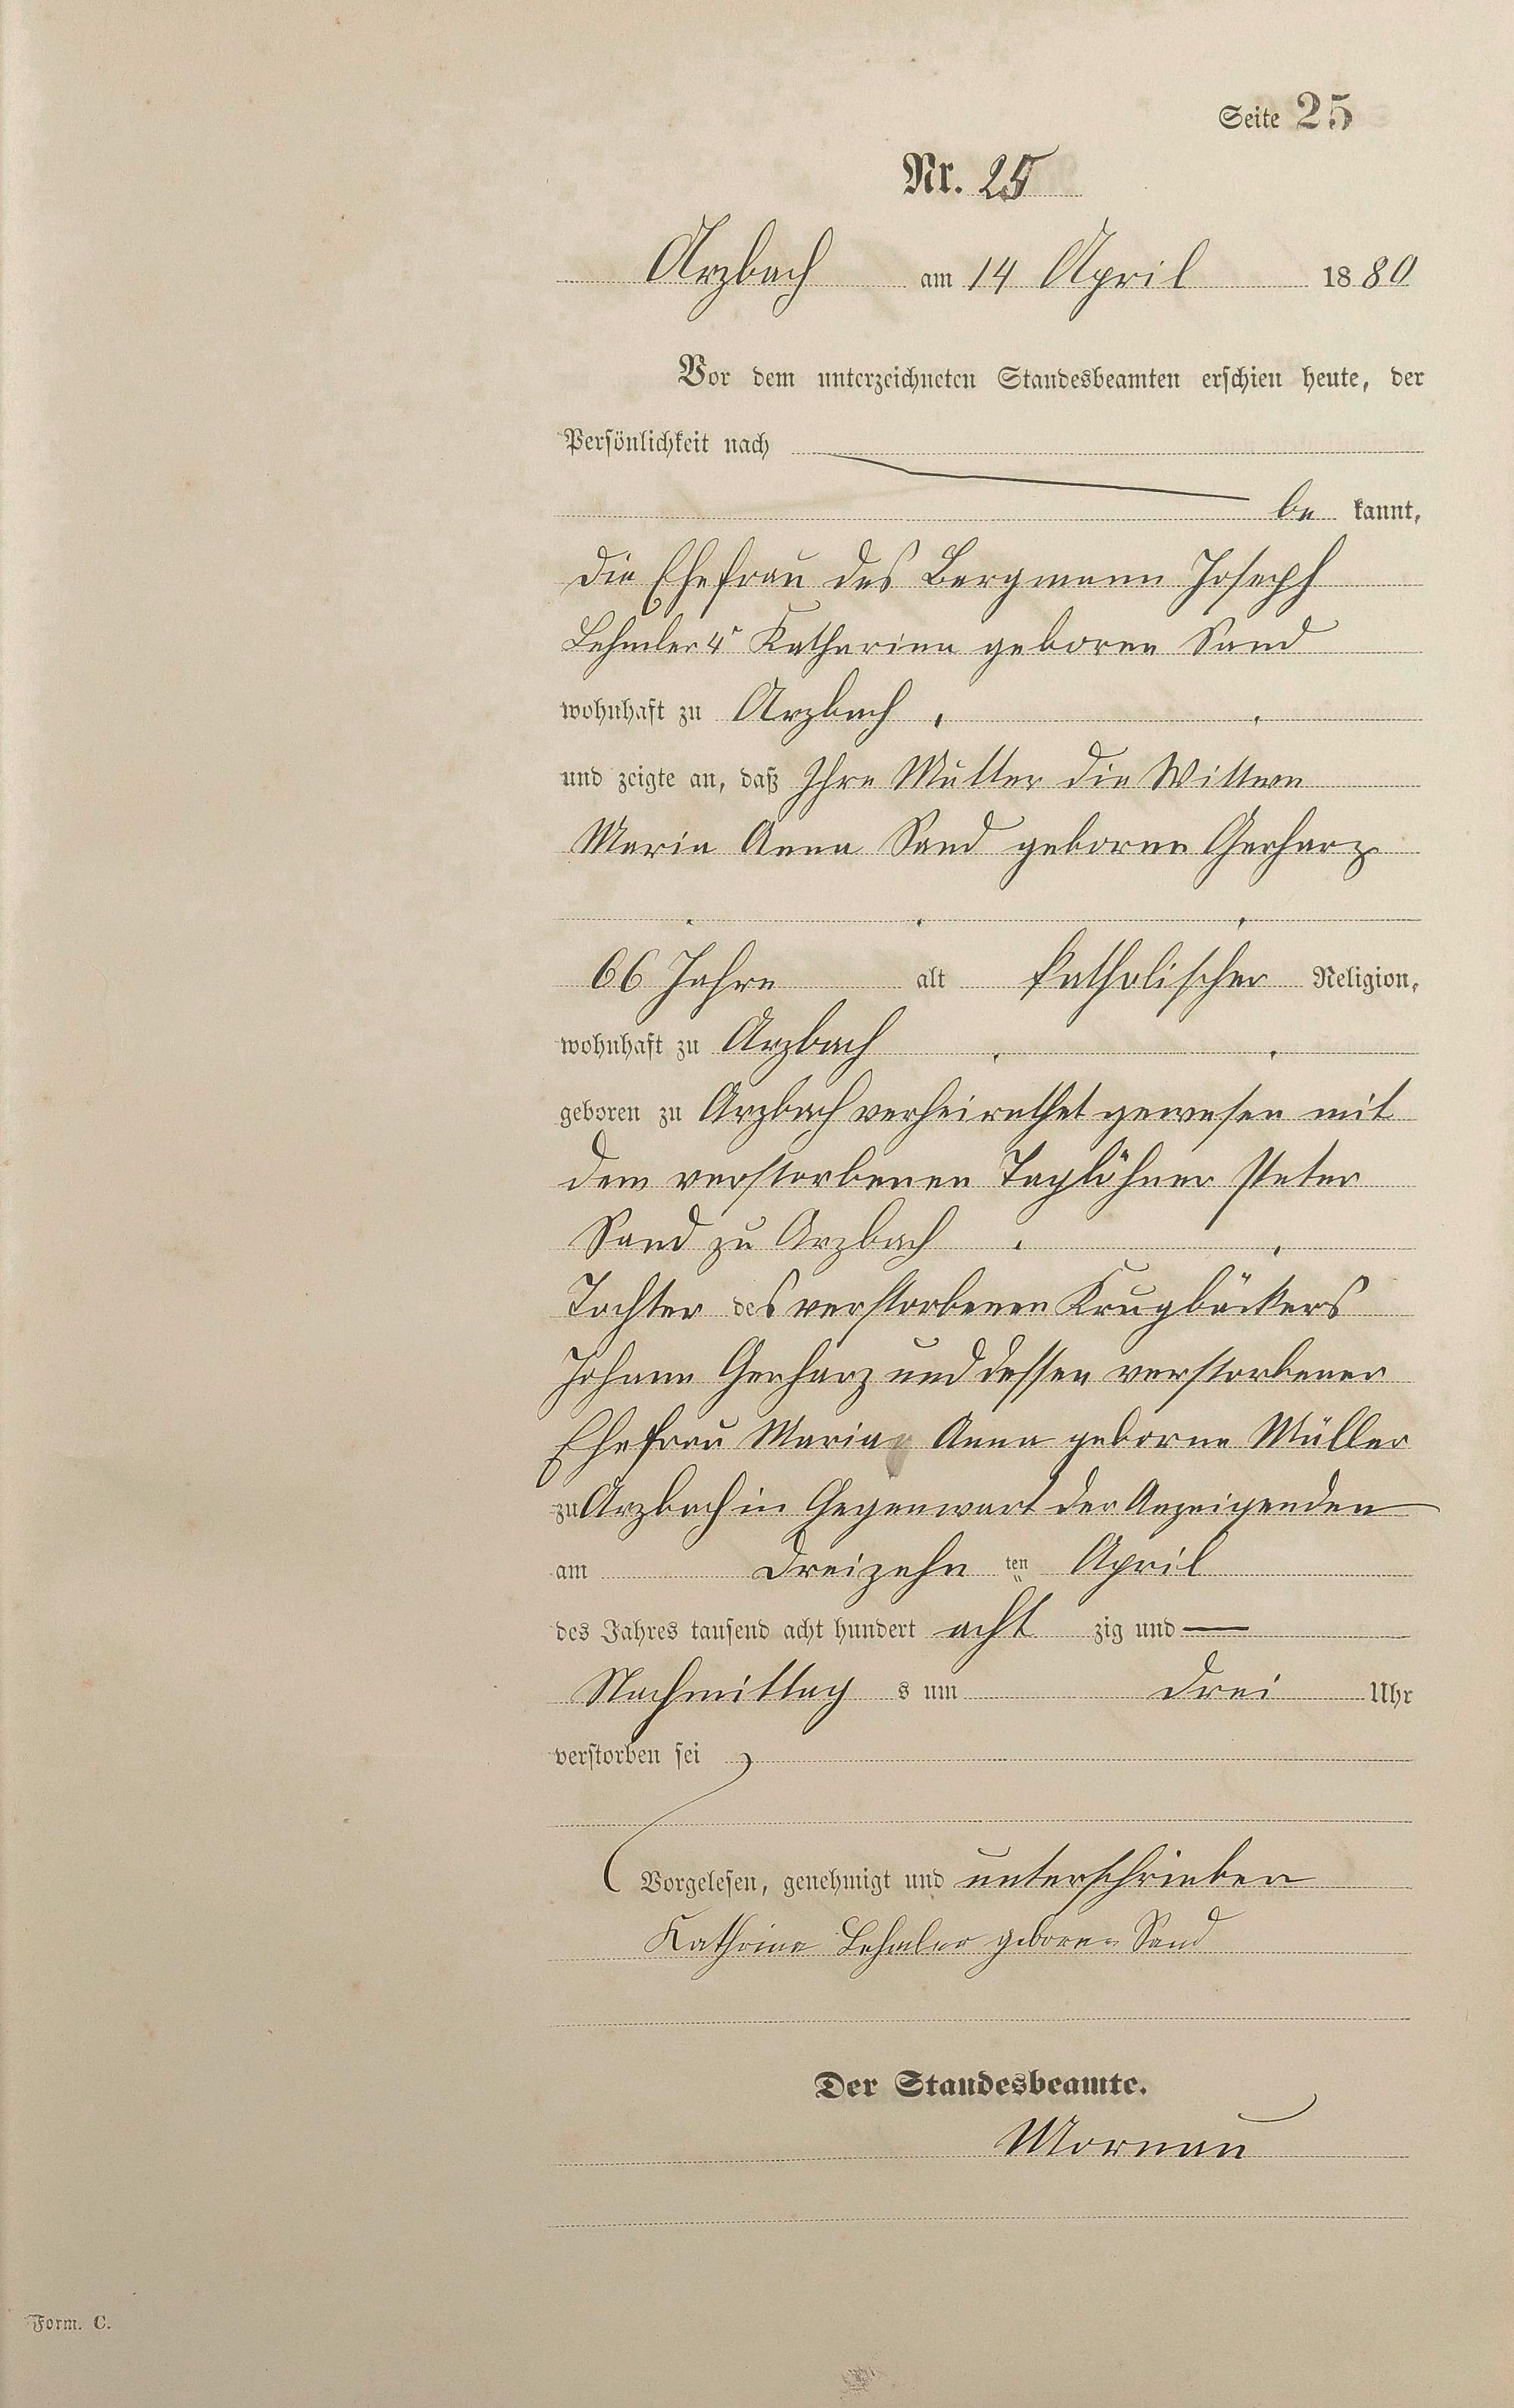 Seite 25
Nr. 25
Arzbach am 14 April 1880
Vor dem unterzeichneten Standesbeamten erschien heute, der
Persönlichkeit nach
be kannt,
die Ehefrau des Bergmann Joseph
Lehmler 4r Katharina geborne Sand
wohnhaft zu Arzbach
und zeigte an, daß Ihre Mutter die Wittwe
Maria Anna Sand geborne Gerharz
66 Jahre alt katholischer Religion,
wohnhaft zu Arzbach
geboren zu Arzbach verheirathet gewesen mit
dem verstorbenen Taglöhner Peter
Sand zu Arzbach
Tochter des verstorbenen Krugbäckers
Johann Gerharz und dessen verstorbener
Ehefrau Maria Anna geborne Müller
zu Arzbach in Gegenwart der Anzeigenden
am dreizehn ten April
des Jahres tausend acht hundert acht zig und —
Nachmittag s um drei Uhr
verstorben sei
Vorgelesen, genehmigt und unterschrieben
Kathrina Lehmler geborne Sand
Der Standesbeamte.
Mornau
Form. C.